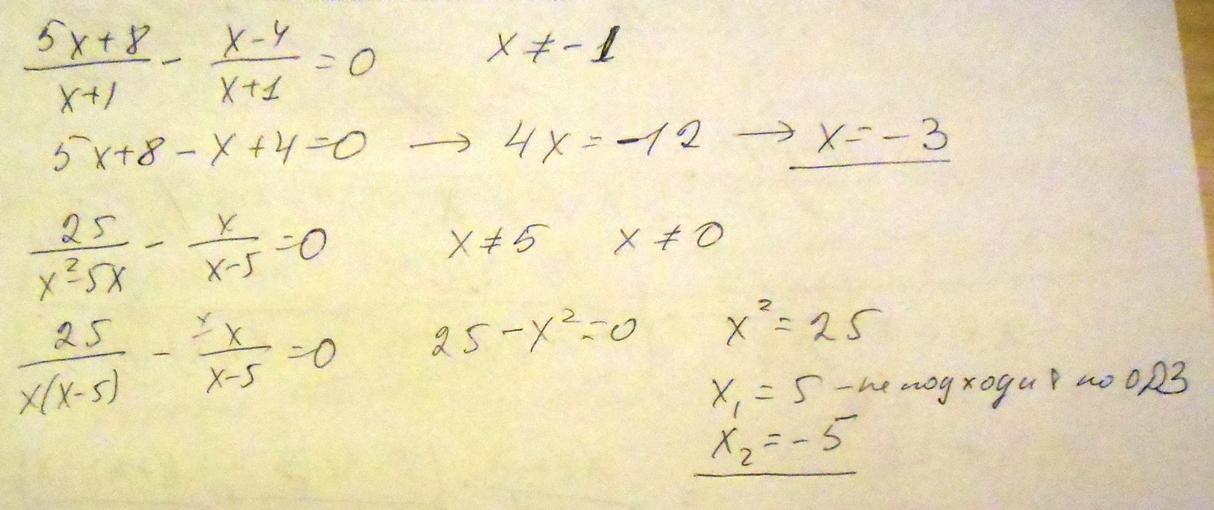 (5x+8)/(x+1) - (x-4)/(x+1) = 0    x ≠ -1
5x+8-x+4=0 → 4x=-12 → x=-3
25/(x²-5x) - x/(x-5) = 0    x≠5    x≠0
25/(x(x-5)) - ˣ x/(x-5) = 0    25-x²=0    x²=25
x₁ = 5 - не подходит по ОДЗ
x₂ = -5